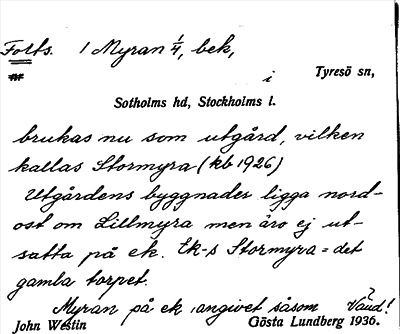 Forts. 1 Myran 1/4, bek,
i Tyresö sn,
Sotholms hd, Stockholms l.
brukas nu som utgård, vilken
kallas Stormyra (kb 1926)
Utgårdens byggnader ligga nord-
ost om Lillmyra men äro ej ut-
satta på ek. Ek-s Stormyra = det
gamla torpet.
Myran på ek angivet såsom ?
John Westin Gösta Lundberg 1936.